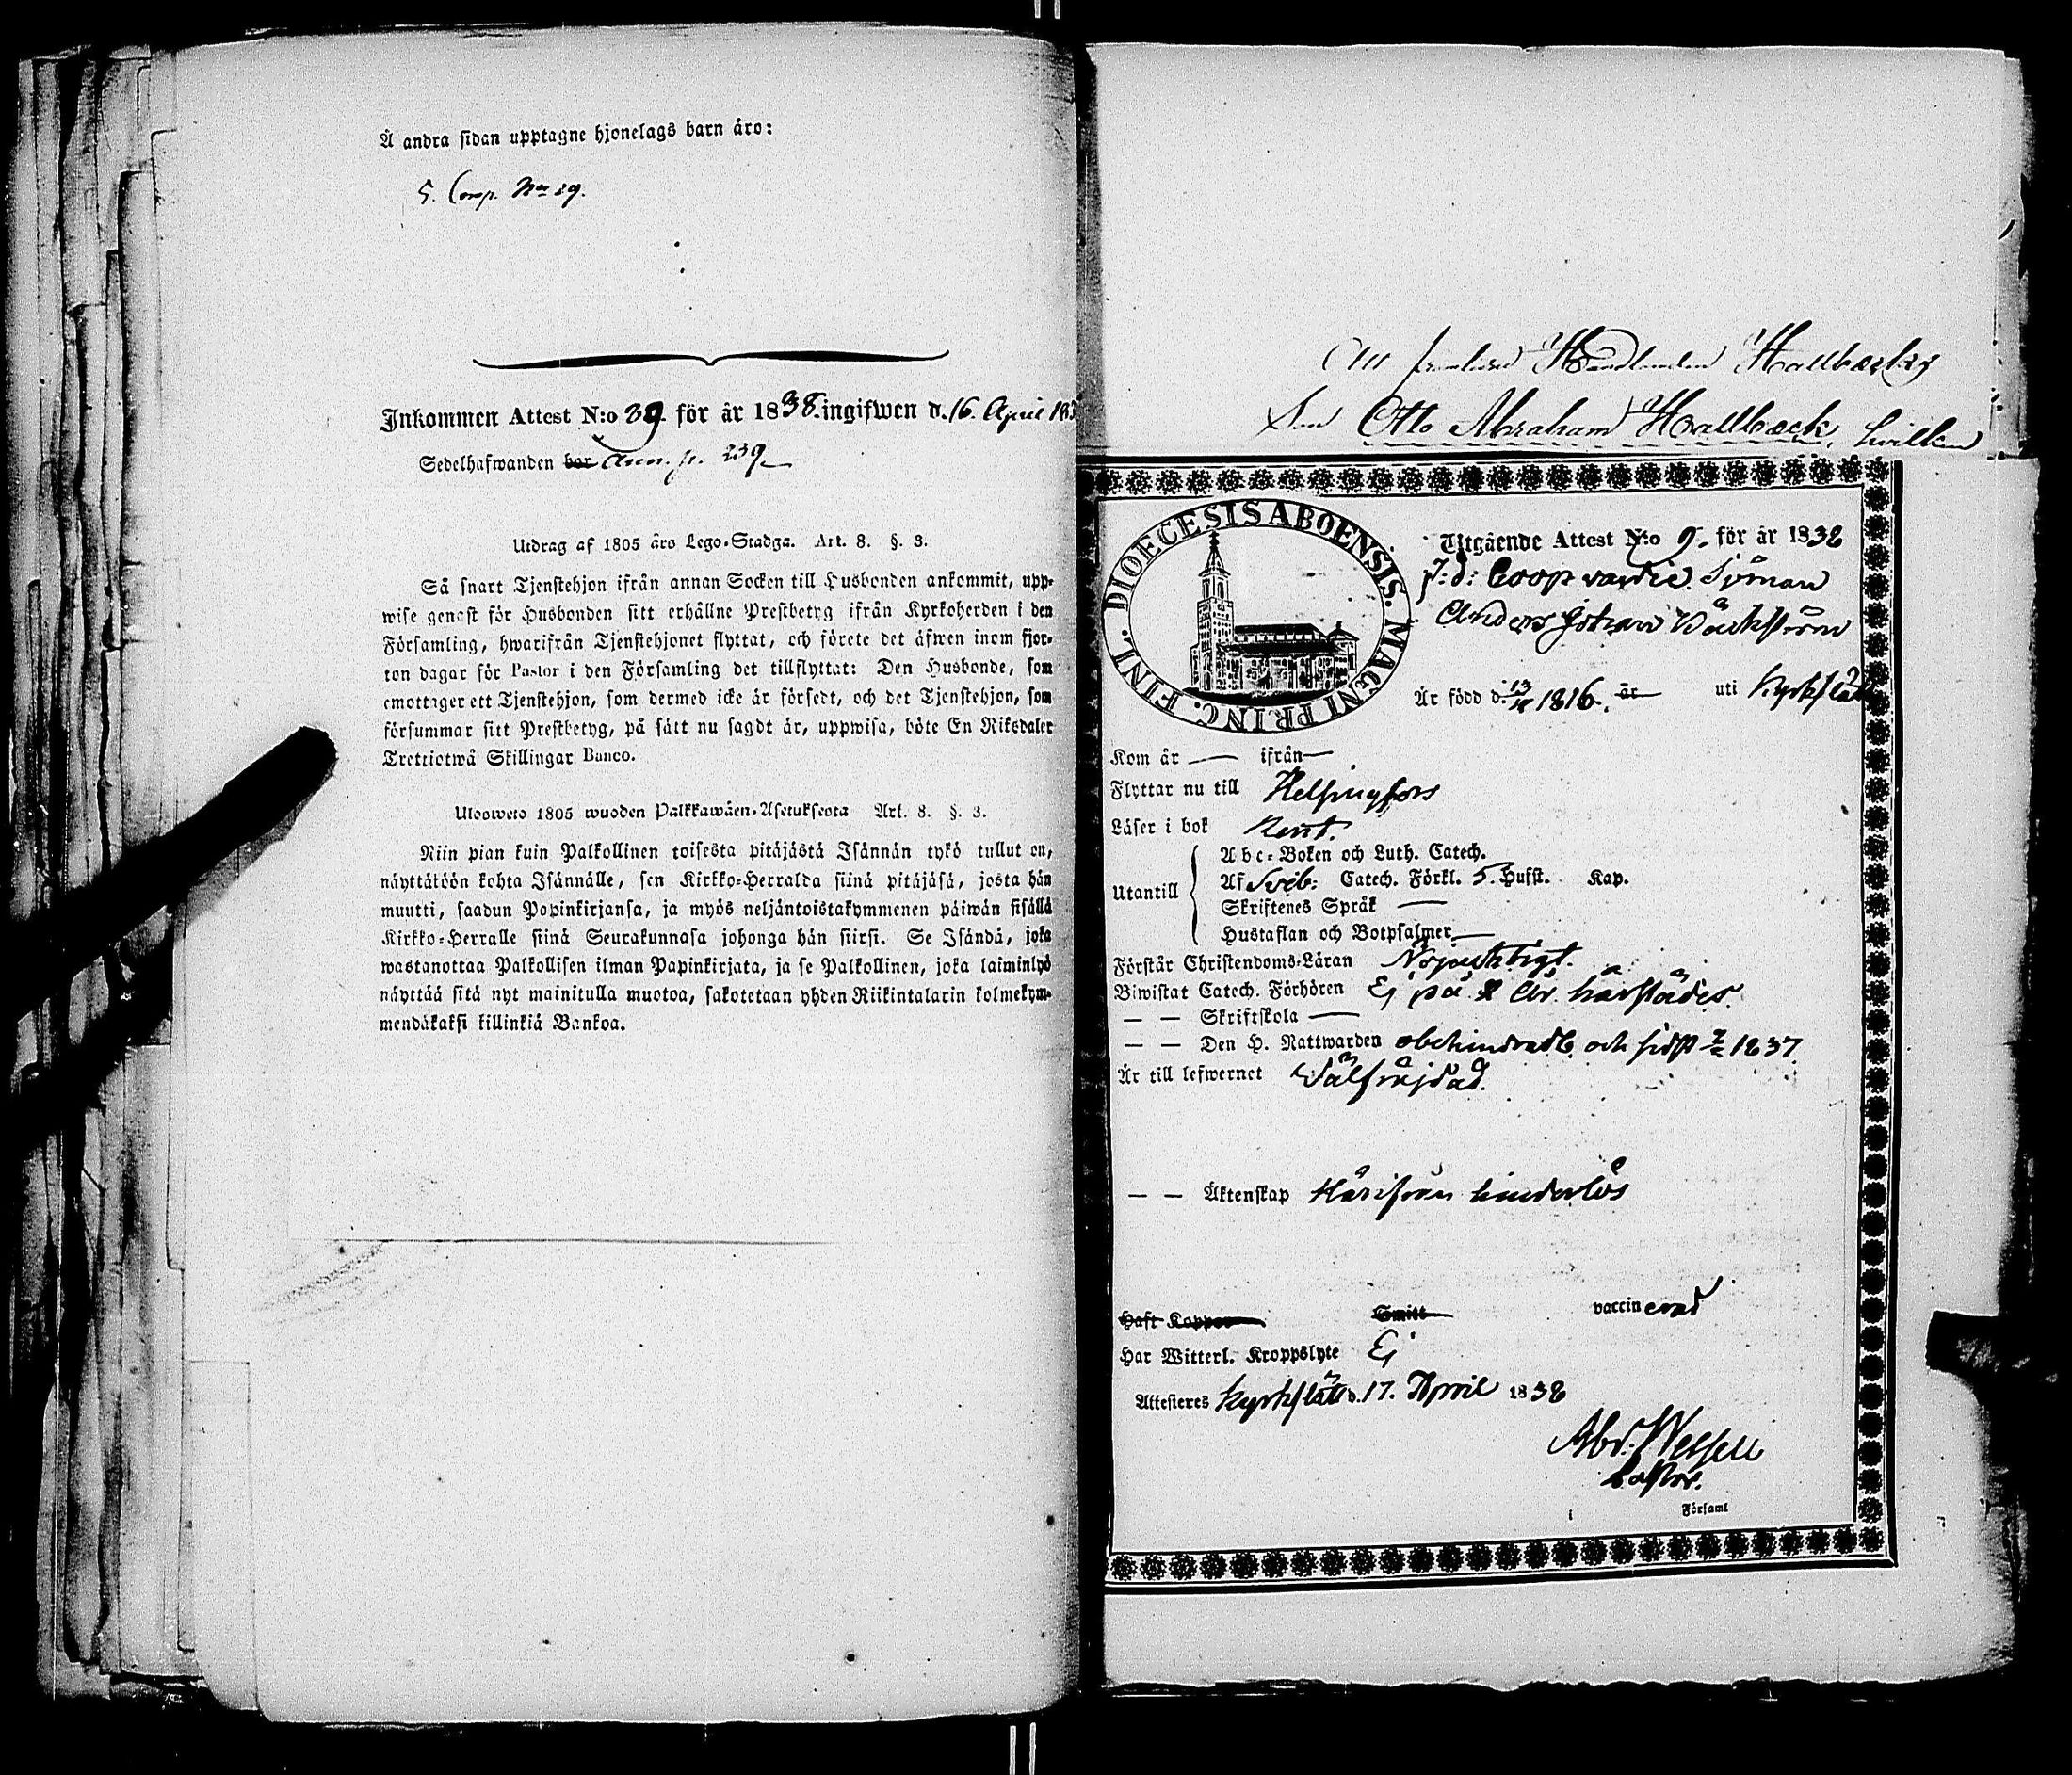 Å andra sidan upptagne hjonelags barn äro:
S. Comp. No 89.
Inkommen Attest N:o 89 för år 1838. ingifwen d. 16. April 183
Sedelhafwanden bor Ann. p. 239
Utdrag af 1805 års Lego-Stadga. Art. 8. §. 3.
Så snart Tjenstehjon ifrån annan Socken till Husbonden ankommit, upp-
wise genast för Husbonden sitt erhållne Prestbetyg ifrån Kyrkoherden i den
Församling, hwarifrån Tjenstehjonet flyttat, och förete det äfwen inom fjor-
ton dagar för Pastor i den Församling det tillflyttat: Den Husbonde, som
emottager ett Tjenstehjon, som dermed icke är försedt, och det Tjenstehjon, som
försummar sitt Prestbetyg, på sätt nu sagdt är, uppwisa, böte En Riksdaler
Trettiotwå Skillingar Banco.
Ulosweto 1805 wuoden Palkkawäen-Asetuksesta Art. 8. §. 3.
Niin pian kuin Palkollinen toisesta pitäjästä Isännän tykö tullut on,
näyttäköön kohta Isännälle, sen Kirkko-Herralda siinä pitäjäsä, josta hän
muutti, saadun Papinkirjansa, ja myös neljäntoistakymmenen päiwän sisällä
Kirkko-Herralle siinä Seurakunnasa johonga hän siirsi. Se Isändä, joka
wastanottaa Palkollisen ilman Papinkirjata, ja se Palkollinen, joka laiminlyö
näyttää sitä nyt mainitulla muotoa, sakotetaan yhden Riikintalarin kolmekym-
mendäkaksi killinkiä Bankoa.
Att framlidne Handlanden Hallbæcks
Son Otto Abraham Hallbæck, hwilken
FINL. DIOECESIS ABOENSIS. MAGNI PRINC.
Utgående Attest N:o 9. för år 1838
f: d: Coopvardie Sjöman
Anders Johan Bäckström
Är född d. 13/ 1816. år uti Kyrkslätt
Kom år — ifrån —
Flyttar nu till Helsingfors
Läser i bok Rent.
Utantill
Abc-Boken och Luth. Catech.
Af Sveb: Catech. Förkl. 5. Hufst. Kap.
Skriftenes Språk —
Hustaflan och Botpsalmer —
Förstår Christendoms-Läran Nöjaktigt.
Biwistat Catech. Förhören Ej på 2 år härstädes.
— — Skriftskola —
— — Den H. Nattwarden obehindradt och sidst 1837
Är till lefwernet Wälfräjdad.
— — Äktenskap Härifrån hinderlös
Haft Koppor Smitt vaccinerad
Har Witterl. Kroppslyte Ej
Attesteres Kyrkslätt d. 17. April 1838
Abr. Wessell
Pastor.
i Församl